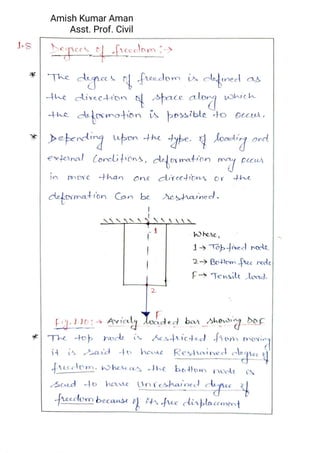 Amish Kumar Aman
Asst. Prof. Civil
1.8 Degrees of freedom :→
* The degrees of freedom is defined as
the direction of space along which
the deformation is possible to occur.
* Depending upon the type of loading and
external Conditions, deformation may occur
in more than one directions or the
deformation Can be restrained.
1
Where,
1 → Top fixed node
2 → Bottom free node
F → Tensile load.
2
F
Fig. 1.10: → Axially loaded bar showing DOF
* The top node is restricted from moving
it is said to have Restrained degree of
freedom. Whereas the bottom node is
said to have Unrestrained degree of
freedom because of its free displacement